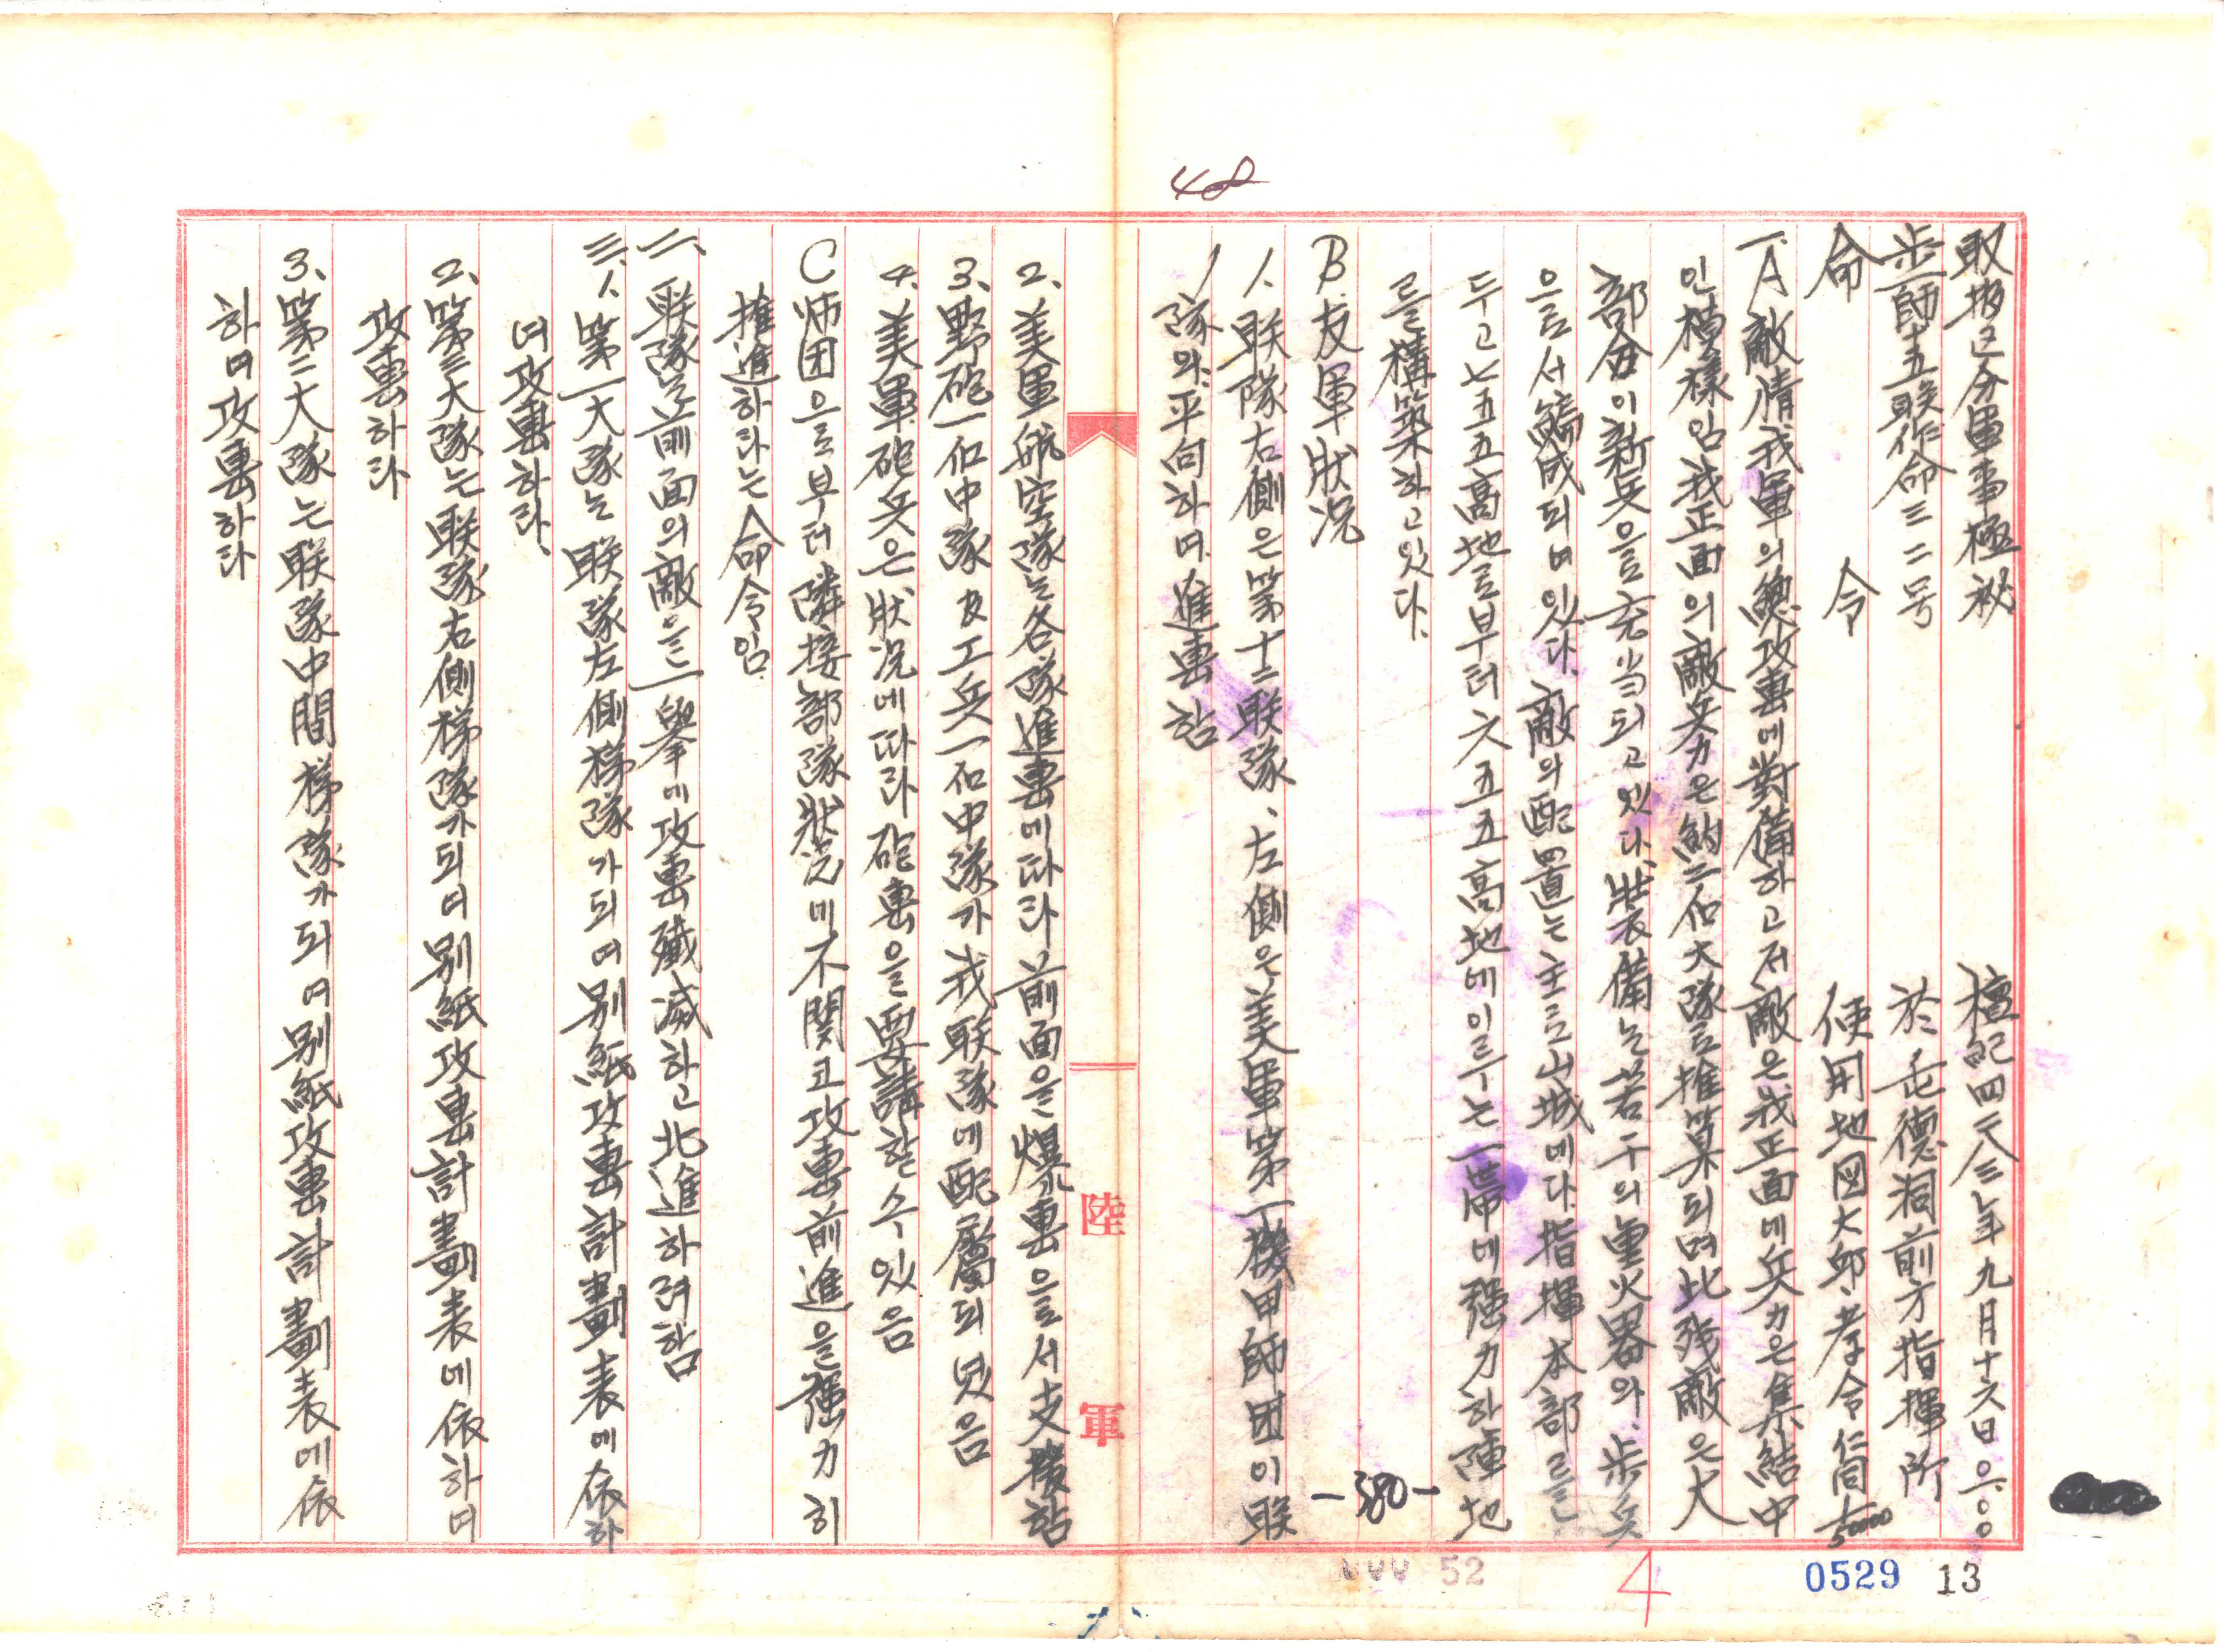 48
取扱区分軍事極秘 檀紀四二八三年九月十六日 八·〇〇
步一師十五聯作命三二号 於 德洞前方指揮所
命 令 使用地図大邱·孝令仁同 1/50000
一. A 敵情 我軍의 總攻擊에 對備하고저 敵은 我正面에 兵力은 集結中
인 模樣임 我正面의 敵兵力은 約二伍大隊로 推算되며 此殘敵은 大
部分이 新兵을로 充当되고 있다. 裝備는 若干의 重火器와. 步兵
으로서 編成되며 있다. 敵의 配置는 主로 山城에다. 指揮本部를
두고 七五五高地로부터 六五五高地에 이르는 一帶에 强力하 陣地
를 構築하고 있다.
B. 友軍狀況
1. 联隊右側은 第十二联隊、左側은 美軍第一機甲師団이 联
隊와. 平向하며. 進擊함
2、美軍航空隊는 各隊進擊에 따라 前面을 爆擊으로서 支援함
3、野砲一伍中隊 及 工兵一伍中隊가 我联隊에 配屬되 었음
4. 美軍砲兵은 狀況에 따라 砲擊을 要請할 수 있음
C 师団으로부터 隣接部隊狀況에 不関코 攻擊前進을 强力히
推進하라는 命令임
二、联隊는 前面의 敵을 一擧에 攻擊 殲滅하고 北進하려함
三. 1. 第一大隊는 联隊左側梯隊가 되며 別紙攻擊計劃表에 依하
며 攻擊하라.
2. 第三大隊는 联隊右側梯隊가 되며 別紙攻擊計劃表에 依하며
攻擊하라
3、第二大隊는 联隊中間梯隊가 되며 別紙攻擊計劃表에 依
하며 攻擊하라
陸 軍
-380-
52
4
0529 13